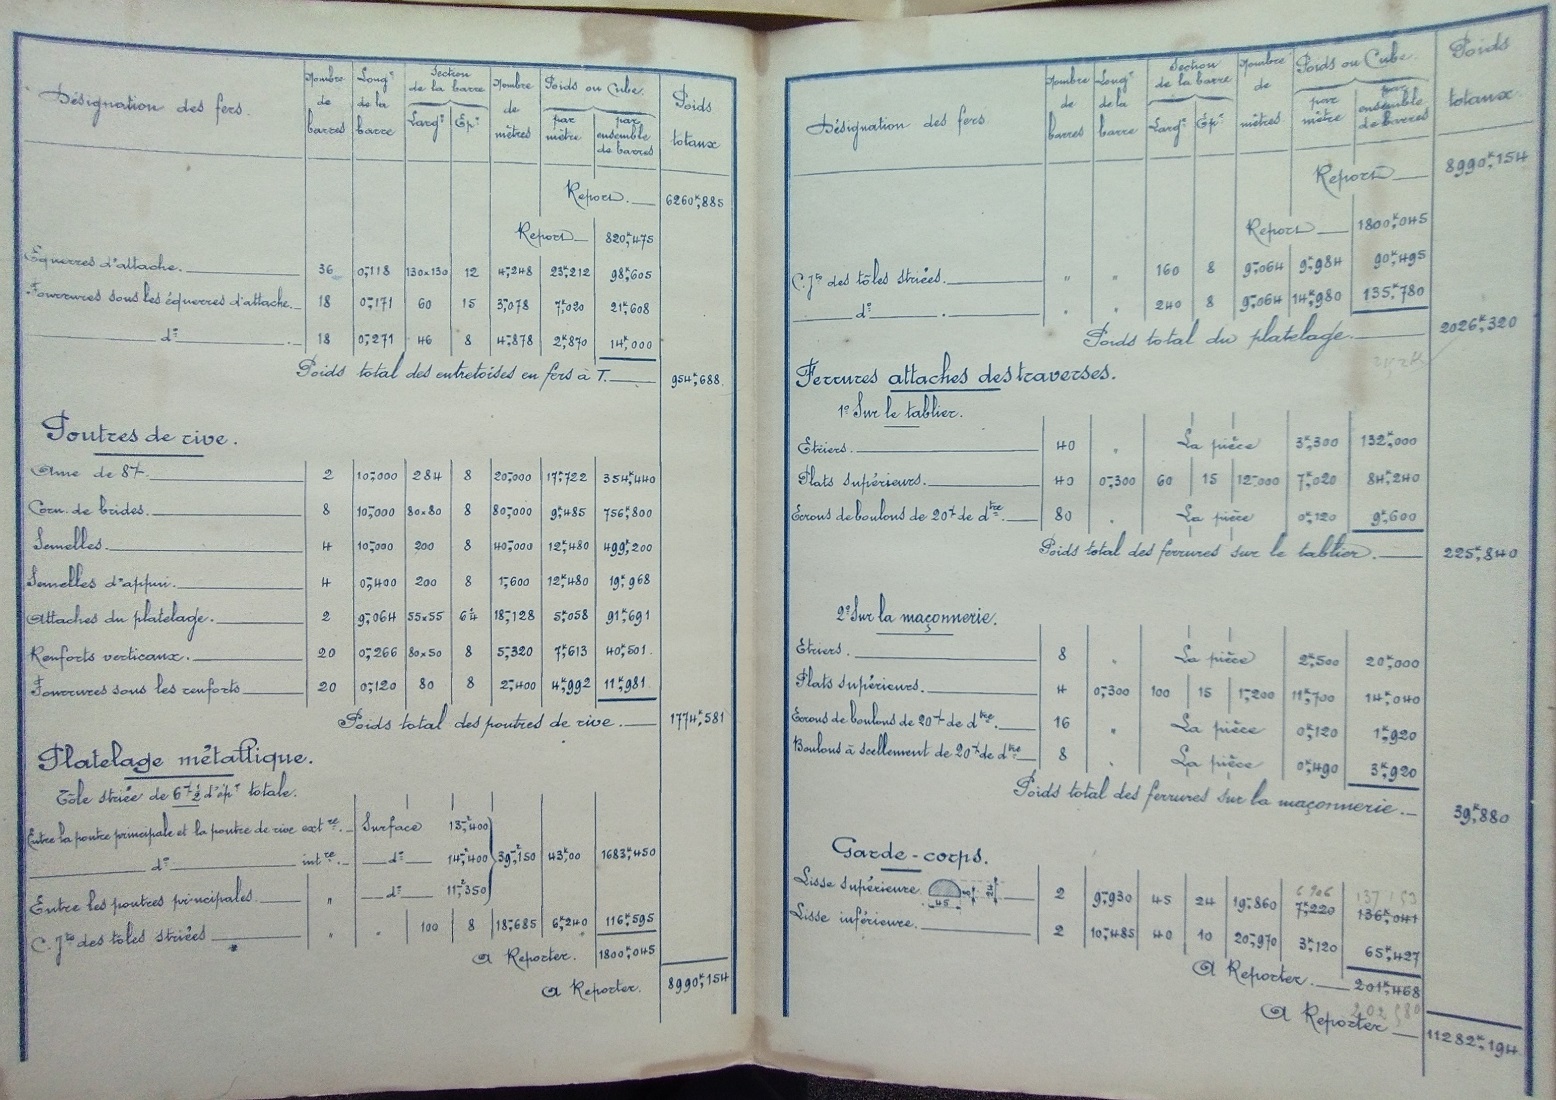 Désignation des fers.
Nombre de barres
Longr de la barre
Section de la barre
Largr Épr
Nombre de mètres
Poids ou Cube.
par mètre
par ensemble de barres
Poids totaux
Report. 6260k,885
Report 820k,475
Equerres d'attache. 36 0m,118 130x130 12 4m,248 23k,212 98k,605
Fourrures sous les équerres d'attache. 18 0m,171 60 15 3m,078 7k,020 21k,608
d° 18 0m,271 46 8 4m,878 2k,870 14k,000
Poids total des entretoises en fers à T. 954k,688.
Poutres de rive.
Ame de 8m/m. 2 10m,000 284 8 20m,000 17k,722 354k,440
Corn. de brides. 8 10m,000 80x80 8 80m,000 9k,485 756k,800
Semelles. 4 10m,000 200 8 40m,000 12k,480 499k,200
Semelles d'appui. 4 0m,400 200 8 1m,600 12k,480 19k,968
Attaches du platelage. 2 9m,064 55x55 6½ 18m,128 5k,058 91k,691
Renforts verticaux. 20 0m,266 80x50 8 5m,320 7k,613 40k,501.
Fourrures sous les renforts 20 0m,120 80 8 2m,400 4k,992 11k,981.
Poids total des poutres de rive. 1774k,581
Platelage métallique.
Tôle striée de 6m/m½ d'épr totale.
Entre la poutre principale et la poutre de rive extre. Surface 13m²,400
d° intre. d° 14m²,400 39m²,150 43k,00 1683k,450
Entre les poutres principales. " d° 11m²,350
C. Jts des tôles striées " " 100 8 18m,685 6k,240 116k,595
A Reporter. 1800k,045
A Reporter. 8990k,154
Désignation des fers
Nombre de barres
Longr de la barre
Section de la barre
Largr Épr
Nombre de mètres
Poids ou Cube.
par mètre
par ensemble de barres
Poids totaux
Report 8990k,154
Report 1800k,045
C. Jts des tôles striées. " " 160 8 9m,064 9k,984 90k,495
d° " " 240 8 9m,064 14k,980 135k,780
Poids total du platelage. 2026k,320
Ferrures attaches des traverses.
1° Sur le tablier.
Etriers. 40 " La pièce 3k,300 132k,000
Plats supérieurs. 40 0m,300 60 15 12m,000 7k,020 84k,240
Ecrous de boulons de 20m/m de dtre. 80 " La pièce 0k,120 9k,600
Poids total des ferrures sur le tablier. 225k,840
2° Sur la maçonnerie.
Etriers. 8 " La pièce 2k,500 20k,000
Plats supérieurs. 4 0m,300 100 15 1m,200 11k,700 14k,040
Ecrous de boulons de 20m/m de dtre. 16 " La pièce 0k,120 1k,920
Boulons à scellement de 20m/m de dtre 8 " La pièce 0k,490 3k,920
Poids total des ferrures sur la maçonnerie. 39k,880
Garde-corps.
6 906 137 153
Lisse supérieure. 45 2 9m,930 45 24 19m,860 7k,220 136k,041
Lisse inférieure. 2 10m,485 40 10 20m,970 3k,120 65k,427
A Reporter. 201k,468
202 580
A Reporter 11282k,194